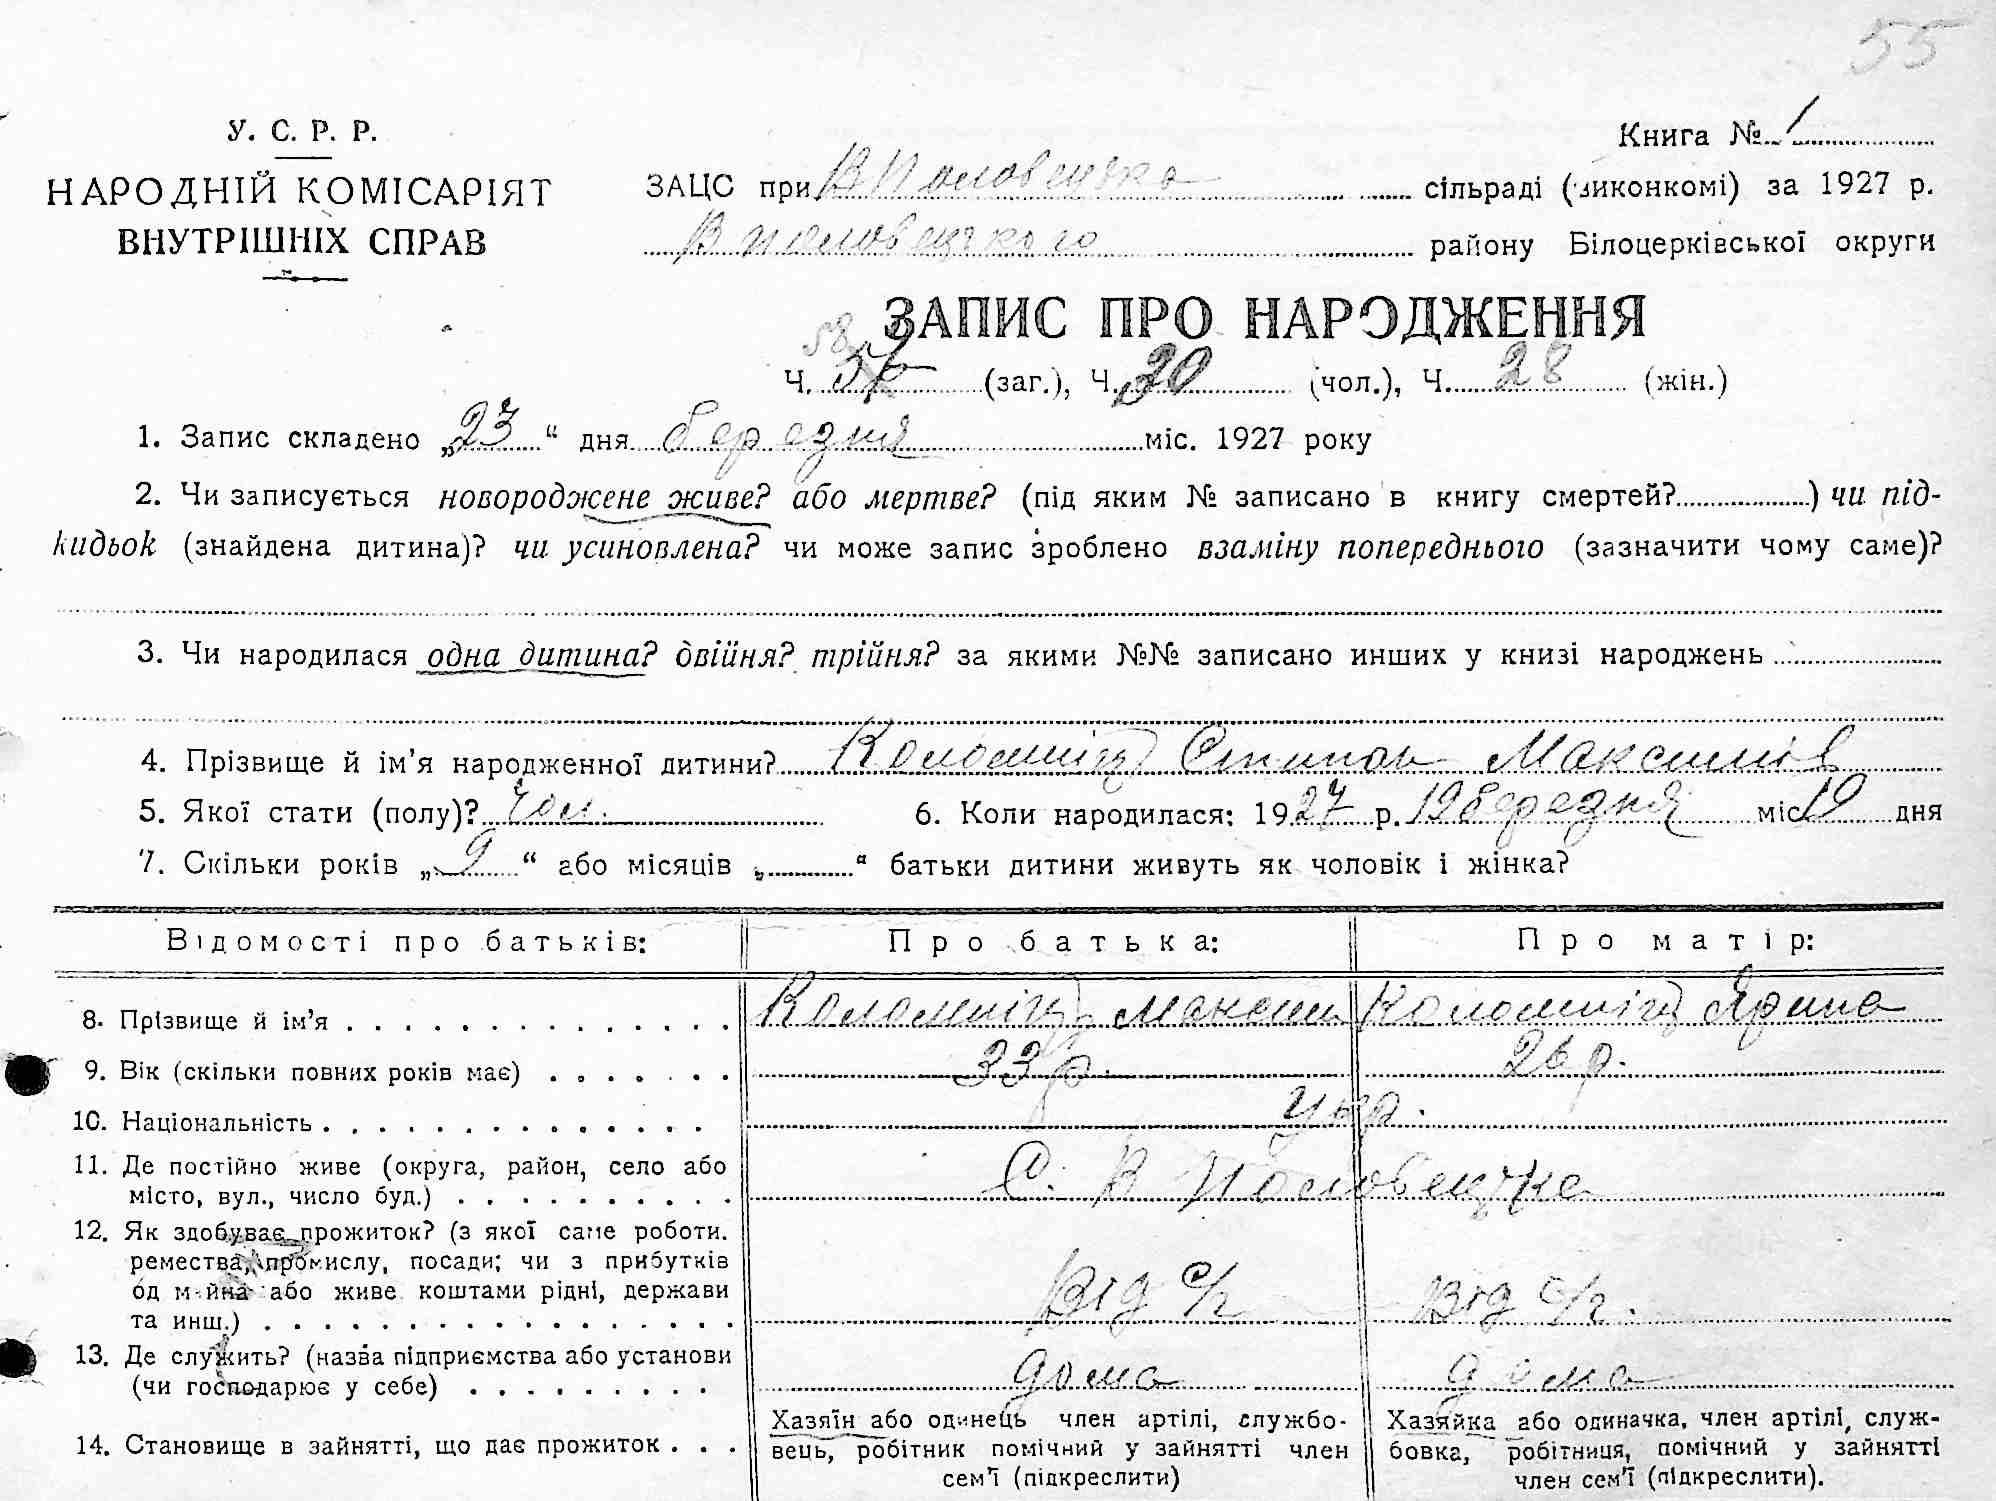 55
У. С. Р. Р.
Книга №1
НАРОДНІЙ КОМІСАРІЯТ
ВНУТРІШНІХ СПРАВ
ЗАЦС при В Половецька сільраді (виконкомі) за 1927 р.
В Половецького району Білоцерківської округи
ЗАПИС ПРО НАРОДЖЕННЯ
58
Ч. (заг.), Ч. 30 (чол.), Ч. 28 (жін.)
1. Запис складено „23“ дня березня міс. 1927 року
2. Чи записується новороджене живе? або мертве? (під яким № записано в книгу смертей?) чи під-
кидьок (знайдена дитина)? чи усиновлена? чи може запис зроблено взаміну попереднього (зазначити чому саме)?
3. Чи народилася одна дитина? двійня? трійня? за якими №№ записано инших у книзі народжень
4. Прізвище й ім’я народженної дитини? Коломніць Стипан Максимів
5. Якої стати (полу)? чол. 6. Коли народилася: 1927 р. 19 березня міс 19 дня
7. Скільки років „9“ або місяців „“ батьки дитини живуть як чоловік і жінка?
Відомості про батьків: Про батька: Про матір:
8. Прізвище й ім’я Коломніць Максим Коломніць Ярина
9. Вік (скільки повних років має) 33 р. 26 р.
10. Національність Укр.
11. Де постійно живе (округа, район, село або
місто, вул., число буд.) С. В Половецьке
12. Як здобуває прожиток? (з якої саме роботи.
ремества, промислу, посади; чи з прибутків
од майна або живе коштами рідні, держави
та инш.) Від С/г Від С/г.
13. Де служить? (назва підприємства або установи
(чи господарює у себе) дома дома
14. Становище в зайнятті, що дає прожиток
Хазяїн або одинець член артілі, службо-
вець, робітник помічний у зайнятті член
сем’ї (підкреслити)
Хазяйка або одиначка, член артілі, служ-
бовка, робітниця, помічний у зайнятті
член сем’ї (підкреслити).